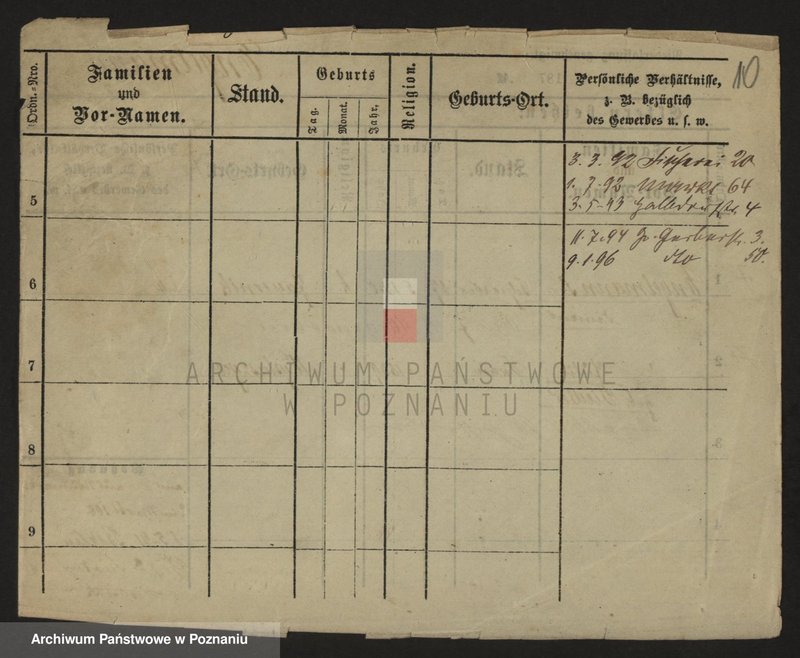 10
Ordn.-Nro.
Familien
und
Vor-Namen.
Stand.
Geburts
Tag.
Monat.
Jahr.
Religion.
Geburts-Ort.
Persönliche Verhältnisse,
z. B. bezüglich
des Gewerbes u. s. w.
3. 3. 92 Fischerei 20
5
1. 7. 92 64
3. 5. 93 4
11. 7. 94 3.
6
9. 1. 96 dto 50.
7
8
9
ARCHIWUM PAŃSTWOWE
W POZNANIU
Archiwum Państwowe w Poznaniu